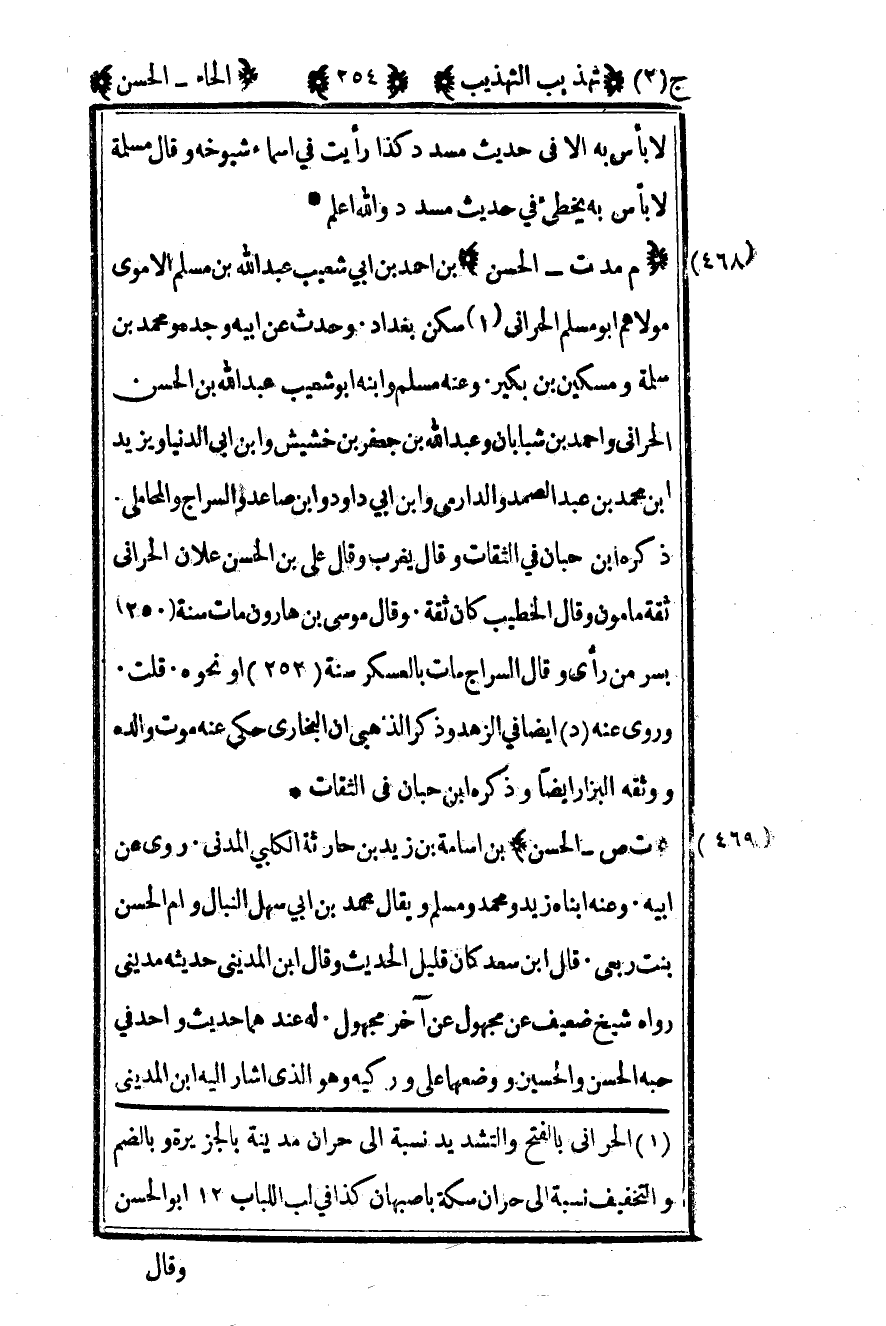 ج(٢) ﴿تهذيب التهذيب﴾ ﴿٢٥٤﴾ ﴿الحاء ـ الحسن﴾
لا بأس به الا في حديث مسدد كذا رأيت في اسماء شيوخه وقال مسلمة
لا بأس به يخطئ في حديث مسدد والله اعلم *
(٤٦٨) ﴿م مد ت ـ الحسن﴾ بن احمد بن ابي شعيب عبدالله بن مسلم الاموى
مولاهم ابو مسلم الحرانى (١) سكن بغداد. وحدث عن ابيه وجده ومحمد بن
سلمة ومسكين بن بكير. وعنه مسلم وابنه ابو شعيب عبدالله بن الحسن
الحرانى واحمد بن شبابان وعبدالله بن جعفر بن خشيش وابن ابى الدنيا ويزيد
ابن محمد بن عبد الصمد والدارمي وابن ابي داود وابن صاعد والسراج والمحاملى.
ذكره ابن حبان في الثقات وقال يغرب وقال على بن الحسن علان الحرانى
ثقة مامون وقال الخطيب كان ثقة. وقال موسى بن هارون مات سنة (٢٥٠)
بسر من رأى وقال السراج مات بالعسكر سنة (٢٥٢) او نحوه. قلت.
وروى عنه (د) ايضا في الزهد وذكر الذهبي ان البخارى حكى عنه موت والده
ووثقه البزار ايضاً وذكره ابن حبان فى الثقات *
(٤٦٩) ﴿ت ص ـ الحسن﴾ بن اسامة بن زيد بن حارثة الكلبي المدنى. روى عن
ابيه. وعنه ابناه زيد ومحمد ومسلم ويقال محمد بن ابي سهل النبال وام الحسن
بنت ربعى. قال ابن سعد كان قليل الحديث وقال ابن المدينى حديثه مدينى
رواه شيخ ضعيف عن مجهول عن آخر مجهول. له عندهما حديث واحد في
حبه الحسن والحسين ووضعهما على وركيه وهو الذى اشار اليه ابن المدينى
(١) الحرانى بالفتح والتشديد نسبة الى حران مدينة بالجزيرة وبالضم
والتخفيف نسبة الى حران سكة باصبهان كذا في لب اللباب ١٢ ابو الحسن
وقال